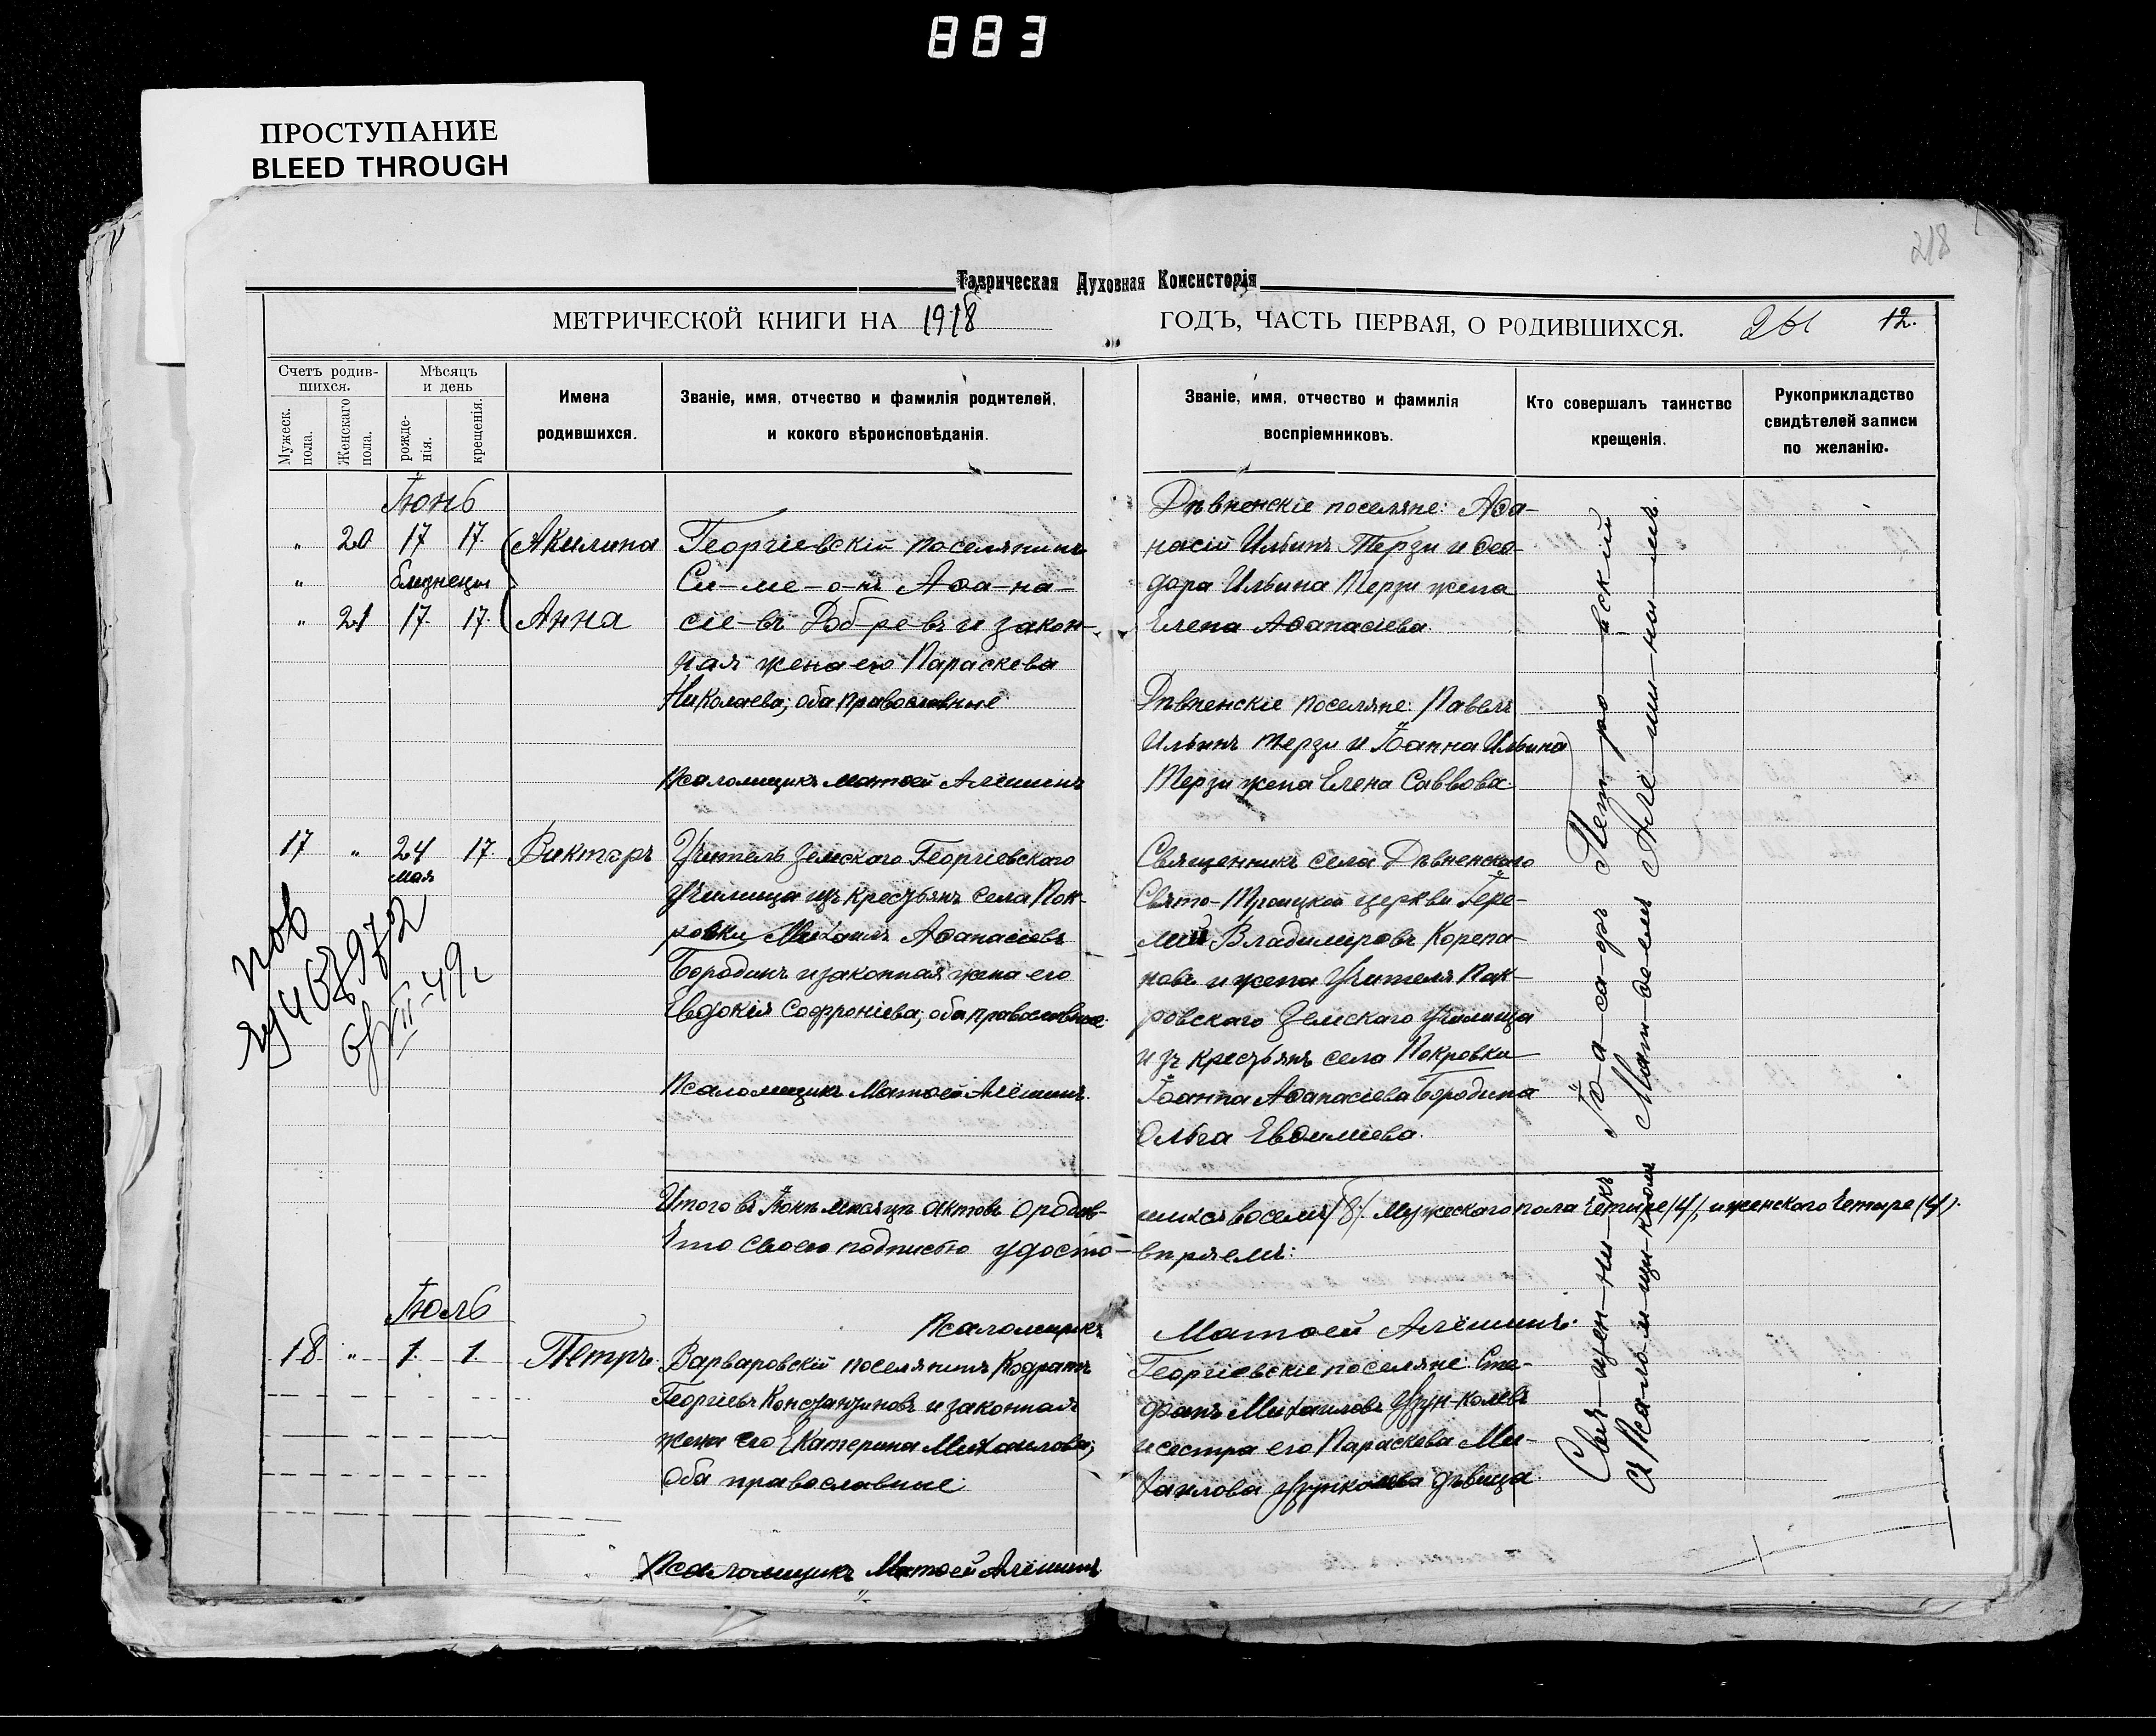 883
ПРОСТУПАНИЕ
BLEED THROUGH
218
Таврическая Духовная Консисторія
МЕТРИЧЕСКОЙ КНИГИ НА 1918 ГОДЪ, ЧАСТЬ ПЕРВАЯ, О РОДИВШИХСЯ. 261 12.
Счетъ родив-
шихся.
Мужеск.
пола.
Женскаго
пола.
Мѣсяцъ
и день
рожде-
нія.
крещенія.
Имена
родившихся.
Званіе, имя, отчество и фамилія родителей,
и кокого вѣроисповѣданія.
Званіе, имя, отчество и фамилія
воспріемниковъ.
Кто совершалъ таинство
крещенія.
Рукоприкладство
свидѣтелей записи
по желанію.
Іюнь
" 20 17 17. Акилина
" близнецы
" 21 17. 17. Анна
Георгіевскій поселянинъ
Си-ме-о-нъ Аѳа-на-
сіе-въ Доб-ре-въ и закон-
ная жена его Параскева
Николаева; оба православные
Псаломщикъ Матѳей Алёшинъ
Дѣвненскіе поселяне: Аѳа-
насій Ильинъ Терзи и Ѳео-
дора Ильина Терзи жена
Елена Аѳанасіева.
Дѣвненскіе поселяне: Павелъ
Ильинъ Терзи и Іоанна Ильина
Терзи жена Елена Саввова.
17 " 24 17. Викторъ
мая
Учитель Земскаго Георгіевскаго
училища изъ крестьянъ села Пок-
ровки Михаилъ Аѳанасіевъ
Бородинъ и законная жена его
Евдокія Софроніева; оба православные.
Псаломщикъ Матѳей Алёшинъ.
Священникъ села Дѣвненскаго
Свято-Троицкой церкви Іере-
мій Владиміровъ Корепа-
новъ и жена Учителя Пок-
ровскаго Земскаго училища
изъ крестьянъ села Покровки
Іоанна Аѳанасіева Бородина
Ольга Евѳиміева.
пов
Итого въ Іюнѣ мѣсяцѣ актовъ о родив-
шихся восемь /8/. Мужескаго пола четыре /4/, и женскаго четыре /4/.
Что своею подписью удосто-
вѣряемъ:
Псаломщикъ Матѳей Алёшинъ.
Іюль
18 " 1. 1. Петръ
Варваровскій поселянинъ Кодратъ
Георгіевъ Константиновъ и законная
жена его Екатерина Михаилова;
оба православные.
Псаломщикъ Матѳей Алёшинъ
Георгіевскіе поселяне: Сте-
фанъ Михаиловъ Узун-колевъ
и сестра его Параскева Ми-
хаилова Узунколева дѣвица
Свя-щен-ни-къ Пет-ро-вскій
съ Псалом-щи-комъ Мат-ѳе-емъ Алё-ши-нымъ.